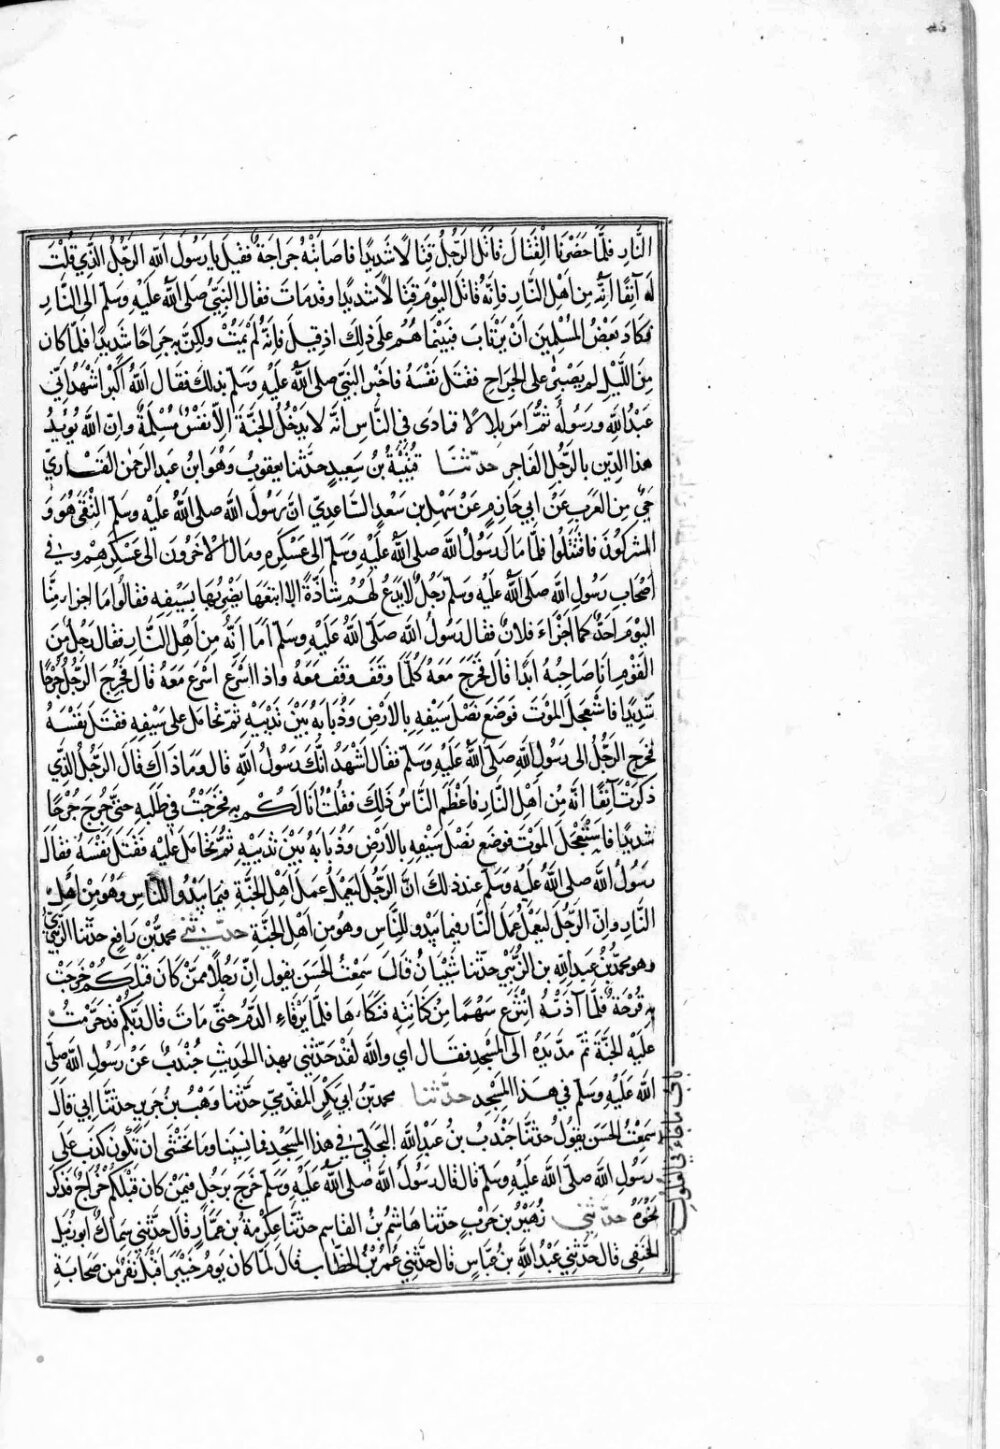 النَّارِ فلمَّا حَضَرْنَا الْقِتَالَ قَاتَلَ الرَّجُلُ قِتَالًا شَدِيدًا فَاصَابَتْهُ جِرَاحَةٌ فقيل يا رَسُولَ الله الرَّجُلُ الَّذِي قُلْتَ
لَهُ آنِفًا اَنَّه مِن اَهْلِ النَّارِ فَاِنَّهُ قَاتَلَ الْيَوْمَ قِتَالًا شَدِيدًا وقد مَاتَ فقال النَّبِيُّ صَلى الله عَلَيْهِ وَسَلَّم الى النَّارِ
فَكَادَ بَعْضُ المُسْلِمِينَ اَنْ يَرْتَابَ فبَيْنَمَا هُمْ عَلَى ذٰلِكَ اذ قِيلَ فَاِنَّهُ لَمْ يَمُتْ ولكِنَّ بِهِ جِرَاحًا شَدِيدًا فلَمَّا كان
مِنَ اللَّيْلِ لم يَصْبِرْ على الجِرَاحِ فقتل نَفْسَهُ فاخبر النَّبِيّ صلى الله عَلَيْهِ وَسَلَّم بذلك فَقَال اللهُ اَكْبَرُ اَشْهَدُ اَنِّي
عَبْدُ اللهِ ورَسُولُهُ ثُمَّ اَمَرَ بِلَالًا فنَادَى في النَّاسِ اَنَّه لا يَدْخُلُ الجَنَّةَ اِلَّا نَفْسٌ مُسْلِمَةٌ واِنّ الله يُؤَيِّدُ
هذا الدِّين بالرَّجُلِ الفَاجِرِ حدّثنا قُتَيْبَةُ بن سَعِيدٍ حدّثنا يعقوبُ وَهُوَ ابن عبد الرحمٰن القَارِيّ
حَيٌّ مِن العَرَبِ عَنْ اَبِي حَازِمٍ عَنْ سَهْلِ بن سَعْدٍ السَّاعِدِيّ انّ رَسُولَ الله صلى الله عَلَيْهِ وسلّم الْتَقَى هُوَ وَ
المشركُونَ فَاقْتَتَلُوا فلمَّا مَالَ رَسُولُ الله صلى الله عَلَيْهِ وَسَلَّم اِلَى عَسْكَرِهِ ومَالَ الآخَرُونَ الى عَسْكَرِهِمْ وفي
اَصْحَابِ رَسُولِ الله صلى الله عَلَيْهِ وسَلَّم رَجُلٌ لا يَدَعُ لَهُمْ شَاذَّةً الا اتبَعَهَا يَضْرِبُهَا بِسَيْفِهِ فقَالُوا مَا اَجْزَاَ مِنَّا
اليَوْمَ اَحَدٌ كَمَا اَجْزَاَ فُلَانٌ فقال رَسُولُ الله صَلّى اللهُ عَلَيْهِ وسَلَّم اَمَا اِنَّهُ مِن اَهْلِ النَّارِ فقال رَجُلٌ مِنَ
القَوْمِ اَنَا صَاحِبُهُ ابَدًا قال فَخَرَجَ مَعَهُ كُلَّمَا وَقَفَ وقَفَ مَعَهُ واذا اَسْرَعَ اسْرَعَ مَعَهُ قالَ فجُرِحَ الرَّجُلُ جُرْحًا
شَدِيدًا فَاسْتَعْجَلَ المَوْتَ فَوَضَعَ نَصْلَ سَيْفِهِ بِالاَرْضِ وَذُبَابَهُ بَيْنَ ثَدْيَيْهِ ثمّ تحَامَل على سَيْفِهِ فقَتَلَ نَفْسَهُ
فخرج الرّجُلُ الى رسولِ اللهِ صَلّى اللهُ عَلَيْهِ وَسَلَّم فقال اَشْهَدُ اَنَّكَ رَسُولُ الله قال ومَا ذَاكَ قَالَ الرَّجُلُ الَّذِي
ذكَرْتَ آنِفًا انَّه مِن اَهْلِ النَّارِ فاَعْظَمَ النَّاسُ ذلِكَ فقُلْتُ اَنَا لَكُمْ بِهِ فخَرَجْتُ فِي طَلَبِهِ حتَّى جُرِحَ جُرْحًا
شَدِيدًا فَاسْتَعْجَلَ المَوْتَ فوضَع نَصْلَ سَيْفِهِ بِالاَرْضِ وَذُبَابَهُ بَيْنَ ثَدْيَيْهِ ثُمَّ تحَامَلَ عَلَيْهِ فَقَتَلَ نَفْسَهُ فقَالَ
رسُولُ الله صلى اللهُ عَلَيْهِ وَسَلَّم عند ذلك انَّ الرَّجُلَ لَيَعْمَلُ عَمَلَ اَهْلِ الجَنَّةِ فيمَا يَبْدُو للنَّاسِ وَهُوَ مِنْ اَهْلِ
النَّار وانّ الرَّجُلَ لَيَعْمَلُ عَمَلَ النَّار فيما يَبْدُو للنَّاسِ وهو مِن اَهْلِ الجَنَّةِ حدّثني محمدُ بْنُ رَافِعٍ حدّثنا الزُّبَيْرِيُّ
وهو محمدُ بْنُ عَبْدِ اللهِ بن الزُّبَيْرِ حدّثنا شَيْبَانُ قَالَ سَمِعْتُ الحَسَنَ يقول اِنّ رَجُلًا مِمَّنْ كَانَ قَبْلَكُمْ خَرَجَتْ
بِهِ قُرْحَةٌ فَلَمَّا آذَتْهُ انْتَزَعَ سَهْمًا مِنْ كِنَانَتِهِ فَنَكَاَهَا فلَمْ يَرْقَاءِ الدَّمُ حتَّى مَات قال رَبُّكُمْ قَدْ حَرَّمْتُ
عَلَيْهِ الجَنَّةَ ثمّ مَدَّ يَدَهُ الى المَسْجِدِ فقَال اي والله لَقَدْ حَدّثَنِي بهذا الحَدِيثِ جُنْدَبٌ عَنْ رَسُولِ اللهِ صلى
اللهُ عَلَيْهِ وَسَلَّم في هَذَا المَسْجِدِ حدّثنا محمد بْن ابي بَكْرٍ المُقَدَّمِيّ حَدَّثنا وَهْبُ بن جَرِيرٍ حدثنَا اَبِي قال
سَمِعْتُ الحَسَنَ يقُولُ حدّثنَا جُنْدَبُ بن عَبْدِ اللهِ البَجَلِيّ في هذا المَسْجِدِ فمَا نَسِينا ومَا نَخْشَى ان يَكُونَ كَذَبَ عَلَى
رسُولِ الله صلى الله عَلَيْهِ وَسَلَّم قال قال رَسُولُ اللهِ صلى الله عَلَيْهِ وَسَلَّم خَرَج بِرَجُلٍ فيمَنْ كان قَبْلَكُمْ خُرَاجٌ فَذَكَرَ
نَحْوَهُ حدّثني زُهَيْرُ بن حَرْبٍ حدّثنا هَاشِمُ بنُ القَاسِم حدّثنا عِكْرِمَةُ بن عَمَّارٍ قال حَدّثني سِمَاكٌ ابو زُمَيْلٍ
الحَنَفِي قال حدّثني عَبْدُ اللهِ بْنُ عَبّاسٍ قال حدّثني عُمَرُ بْنُ الخَطَّابِ قَالَ لَمَّا كان يَومُ خَيْبَرَ اَقْبَلَ نَفَرٌ مِن صَحَابَةِ
باب ما جاء في الغلول